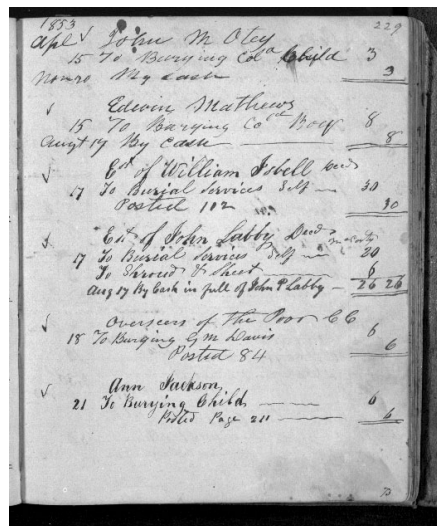 1853 229
Apl John M Otey
15 To Burying Cold Child 3
Nov 20 By Cash 3
Edwin Mathews
15 To Burying Cold Boy 8
Augt 17 By Cash 8
Est of William Isbell Decd
17 To Burial Services Self 30
Posted 112 30
Est of John Labby Decd
17 To Burial Services Self 20
To Shroud & Sheet 6
Aug 17 By Cash in full of John P Labby 26 26
Overseers of the Poor CC
18 To Burying G M Davis 6
Posted 84 6
Ann Jackson
21 To Burying Child 6
Posted Page 211 6